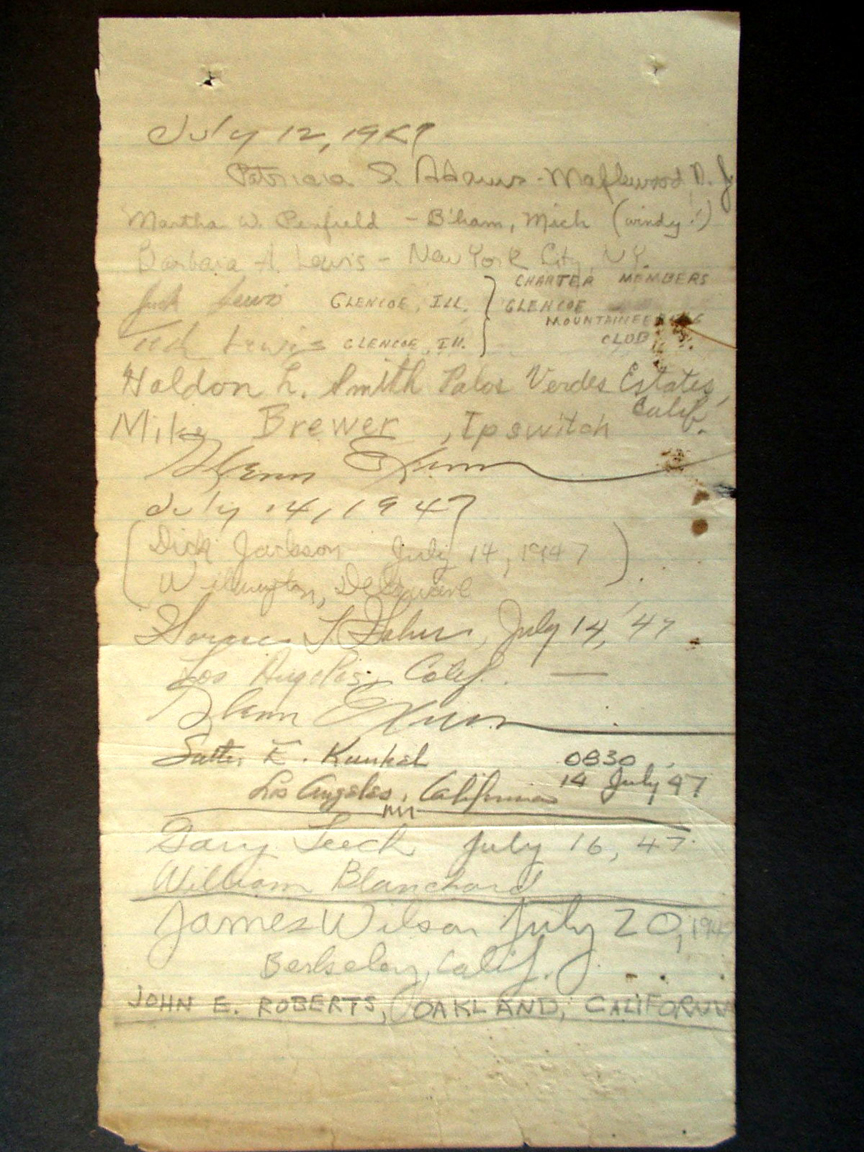 July 12, 1947
Patricia S. Adams - Maplewood N. J.
Martha W. Penfield - B'ham, Mich (windy!)
Barbara A. Lewis - New York City, N.Y.
Jack Lewis GLENCOE, ILL. } CHARTER MEMBERS
GLENCOE
MOUNTAINEERING
Ted Lewis GLENCOE, Ill. CLUB
Haldon L. Smith Palos Verdes Estates,
Calif.
Mike Brewer, Ipswitch
Glenn Exum
July 14, 1947
(Dick Jackson July 14, 1947)
Wilmington, Delaware
July 14, '47
Los Angeles, Calif. —
Glenn Exum
E. Kunkel 0830
Los Angeles, California 14 July 47
Gary Leech July 16, 47
William Blanchard
James Wilson July 20, 194
Berkeley, Calif.
JOHN E. ROBERTS, OAKLAND, CALIFORNIA